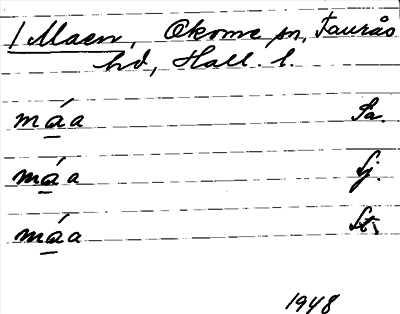 1 Maen, Okome sn, Faurås
hd, Hall. l.
máa Sa.
máa Sj.
máa St.
1948